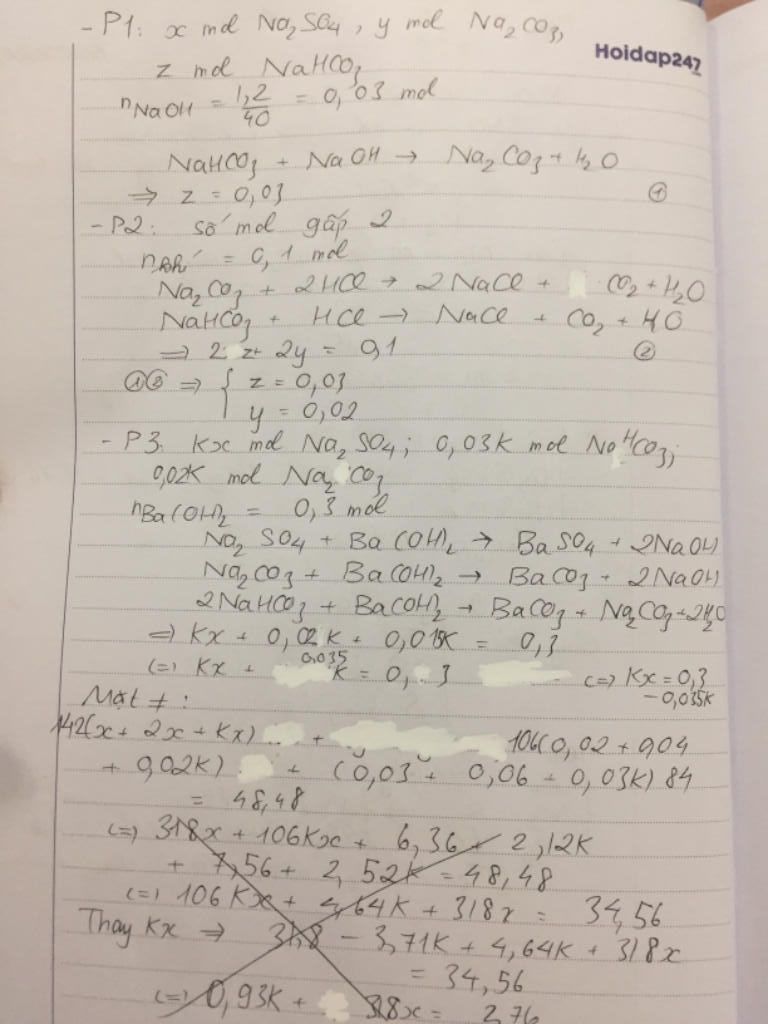 - P1: x mol Na2SO4, y mol Na2CO3,
Hoidap247
z mol NaHCO3
nNaOH = 1,2/40 = 0,03 mol
NaHCO3 + NaOH → Na2CO3 + H2O
=> z = 0,03 (1)
- P2: số mol gấp 2
= 0,1 mol
Na2CO3 + 2HCl → 2NaCl + CO2 + H2O
NaHCO3 + HCl → NaCl + CO2 + HO
=> 2 z + 2y = 0,1 (2)
=> { z = 0,03
y = 0,02
- P3. Kx mol Na2SO4; 0,03K mol NaHCO3;
0,02K mol Na2CO3
nBa(OH)2 = 0,3 mol
Na2SO4 + Ba(OH)2 → BaSO4 + 2NaOH
Na2CO3 + Ba(OH)2 → BaCO3 + 2NaOH
2NaHCO3 + Ba(OH)2 → BaCO3 + Na2CO3 + 2H2O
=> Kx + 0,02K + 0,015K = 0,3
(=) Kx + 0,035K = 0,3 (=) Kx = 0,3 - 0,035K
Mặt ≠ :
142(x + 2x + Kx) + 106(0,02 + 0,04
+ 0,02K) + (0,03 + 0,06 + 0,03K) 84
= 48,48
(=) 318x + 106Kx + 6,36 + 2,12K
+ 7,56 + 2,52K = 48,48
(=) 106Kx + 4,64K + 318x = 34,56
Thay Kx => 31,8 - 3,71K + 4,64K + 318x
= 34,56
(=) 0,93K + 318x = 2,76